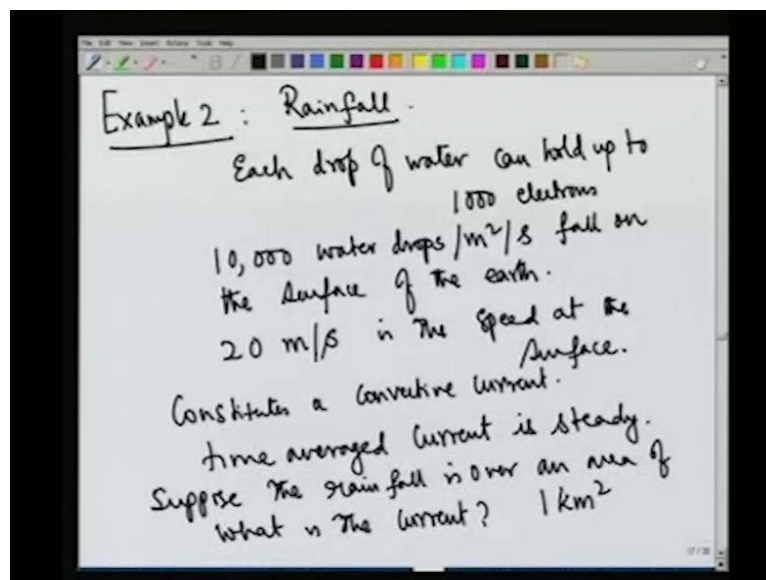 File Edit View Insert Actions Tools Help
Example 2 : Rainfall.
Each drop of water can hold up to
1000 electrons
10,000 water drops/m²/s fall on
the surface of the earth.
20 m/s is the speed at the
surface.
Constitutes a convective current.
time averaged current is steady.
Suppose the rainfall is over an area of
what is the current? 1 km²
17/20